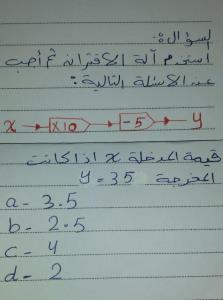 السؤال:
استخدم آلة الاقتران ثم أجب
عن الاسئلة التالية:
x → ×10 → -5 → y
قيمة المدخلة x اذا كانت
المخرجة y = 35
a- 3.5
b- 2.5
c- 4
d- 2